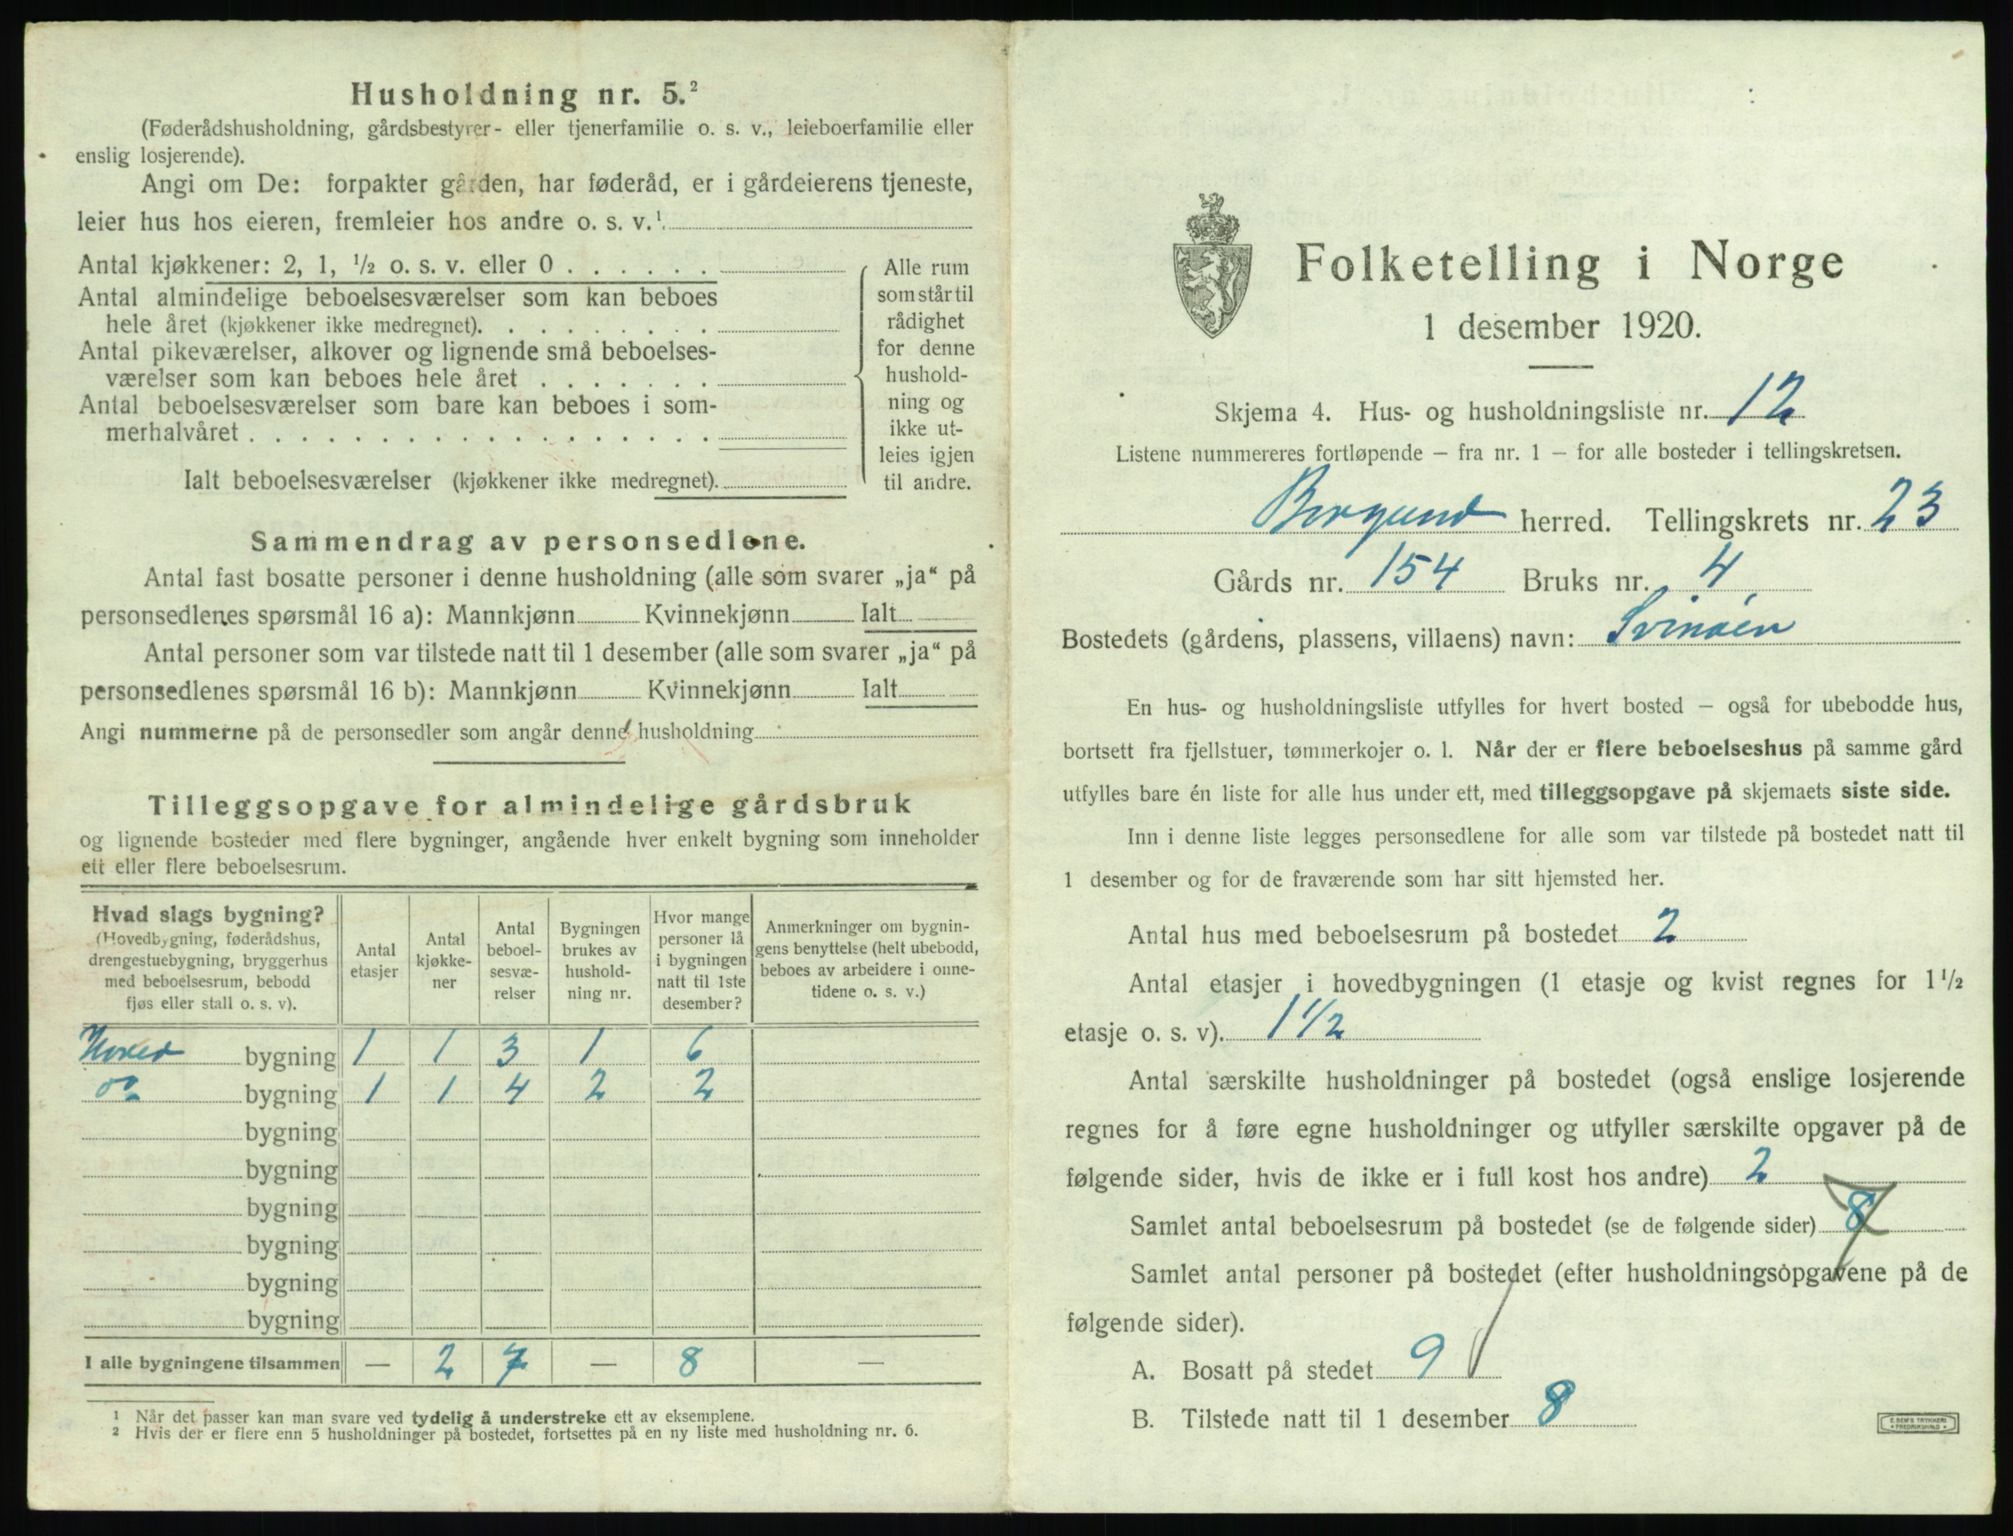 Husholdning nr. 5.²
(Føderådshusholdning, gårdsbestyrer- eller tjenerfamilie o. s. v., leieboerfamilie eller
enslig losjerende).
Angi om De: forpakter gården, har føderåd, er i gårdeierens tjeneste,
leier hus hos eieren, fremleier hos andre o. s. v.¹
Antal kjøkkener: 2, 1, ½ o. s. v. eller 0 . . . . . .
Antal almindelige beboelsesværelser som kan beboes
hele året (kjøkkener ikke medregnet). . . . . . . . .
Antal pikeværelser, alkover og lignende små beboelses-
værelser som kan beboes hele året . . . . . . .
Antal beboelsesværelser som bare kan beboes i som-
merhalvåret . . . . . . . . . . . . . . . . . .
Alle rum
som står til
rådighet
for denne
hushold-
ning og
ikke ut-
leies igjen
til andre.
Ialt beboelsesværelser (kjøkkener ikke medregnet).
Sammendrag av personsedlene.
Antal fast bosatte personer i denne husholdning (alle som svarer „ja“ på
personsedlenes spørsmål 16 a): Mannkjønn Kvinnekjønn Ialt
Antal personer som var tilstede natt til 1 desember (alle som svarer „ja“ på
personsedlenes spørsmål 16 b): Mannkjønn Kvinnekjønn Ialt
Angi nummerne på de personsedler som angår denne husholdning
Tilleggsopgave for almindelige gårdsbruk
og lignende bosteder med flere bygninger, angående hver enkelt bygning som inneholder
ett eller flere beboelsesrum.
Hvad slags bygning?
(Hovedbygning, føderådshus,
drengestuebygning, bryggerhus
med beboelsesrum, bebodd
fjøs eller stall o. s. v).
Antal
etasjer
Antal
kjøkke-
ner
Antal
beboel-
sesvæ-
relser
Bygningen
brukes av
hushold-
ning nr.
Hvor mange
personer lå
i bygningen
natt til 1ste
desember?
Anmerkninger om bygnin-
gens benyttelse (helt ubebodd,
beboes av arbeidere i onne-
tidene o. s. v.)
Hoved bygning 1 1 3 1 6
do bygning 1 1 4 2 2
bygning
bygning
bygning
bygning
bygning
bygning
I alle bygningene tilsammen — 2 7 — 8 —
¹ Når det passer kan man svare ved tydelig å understreke ett av eksemplene.
² Hvis der er flere enn 5 husholdninger på bostedet, fortsettes på en ny liste med husholdning nr. 6.
Folketelling i Norge
1 desember 1920.
Skjema 4. Hus- og husholdningsliste nr. 12
Listene nummereres fortløpende – fra nr. 1 – for alle bosteder i tellingskretsen.
Borgund herred. Tellingskrets nr. 23
Gårds nr. 154 Bruks nr. 4
Bostedets (gårdens, plassens, villaens) navn: Svinøen
En hus- og husholdningsliste utfylles for hvert bosted – også for ubebodde hus,
bortsett fra fjellstuer, tømmerkojer o. l. Når der er flere beboelseshus på samme gård
utfylles bare én liste for alle hus under ett, med tilleggsopgave på skjemaets siste side.
Inn i denne liste legges personsedlene for alle som var tilstede på bostedet natt til
1 desember og for de fraværende som har sitt hjemsted her.
Antal hus med beboelsesrum på bostedet 2
Antal etasjer i hovedbygningen (1 etasje og kvist regnes for 1½
etasje o. s. v). 1 1/2
Antal særskilte husholdninger på bostedet (også enslige losjerende
regnes for å føre egne husholdninger og utfyller særskilte opgaver på de
følgende sider, hvis de ikke er i full kost hos andre) 2
Samlet antal beboelsesrum på bostedet (se de følgende sider) 8 7
Samlet antal personer på bostedet (efter husholdningsopgavene på de
følgende sider).
A. Bosatt på stedet 9
B. Tilstede natt til 1 desember 8